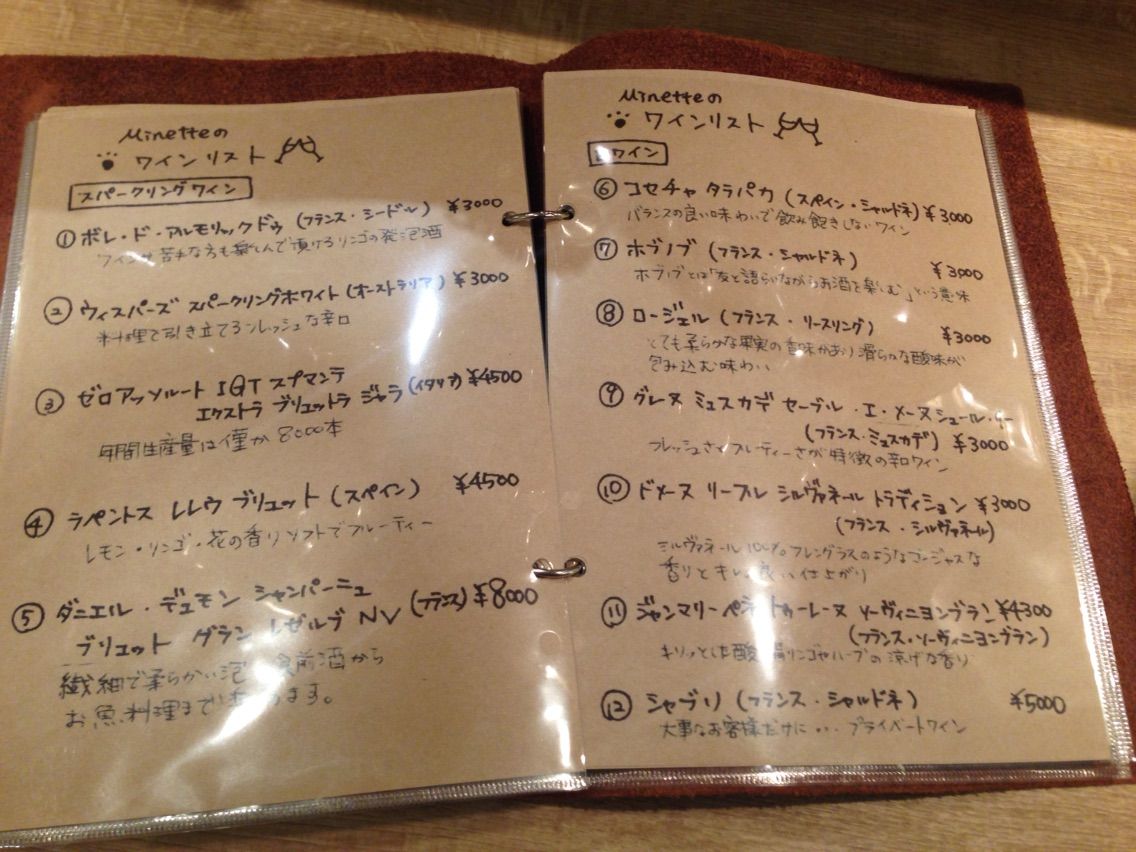 Minetteの
ワインリスト
スパークリングワイン
① ボレ・ド・アルモリックドゥ (フランス・シードル) ¥3000
ワインが苦手な方も楽しんで頂けるリンゴの発泡酒
② ウィスパーズ スパークリングホワイト (オーストラリア) ¥3000
料理で引き立てるフレッシュな辛口
③ ゼロアッソルート IGT スプマンテ
エクストラ ブリュットラ ジャラ (イタリア) ¥4500
年間生産量は僅か8000本
④ ラペントス レレウ ブリュット (スペイン) ¥4500
レモン・リンゴ・花の香り ソフトでフルーティー
⑤ ダニエル・デュモン シャンパーニュ
ブリュット グラン レゼルブ NV (フランス) ¥8000
繊細で柔らかい泡 食前酒から
お魚料理まで
Minetteの
ワインリスト
ワイン
⑥ コセチャ タラパカ (スペイン・シャルドネ) ¥3000
バランスの良い味わいで飲み飽きしないワイン
⑦ ホブノブ (フランス・シャルドネ) ¥3000
ホブノブとは「友と語らいながらお酒を楽しむ」という意味
⑧ ロージェル (フランス・リースリング) ¥3000
とても柔らかな果実の香味があり滑らかな酸味が
包み込む味わい
⑨ グレーヌ ミュスカデ セーブル・エ・メーヌ シュール・リー
(フランス・ミュスカデ) ¥3000
フレッシュさとフルーティーさが特徴の辛口ワイン
⑩ ドメーヌ リーフル シルヴァネール トラディション ¥3000
(フランス・シルヴァネール)
シルヴァネール100%。フレングラスのようなゴージャスな
香りとキレの良い仕上がり
⑪ ジャンマリー ペネ トゥーレーヌ ソーヴィニヨンブラン ¥4300
(フランス・ソーヴィニヨンブラン)
キリッとした酸 青リンゴやハーブの涼げな香り
⑫ シャブリ (フランス・シャルドネ) ¥5000
大事なお客様だけに・・・プライベートワイン